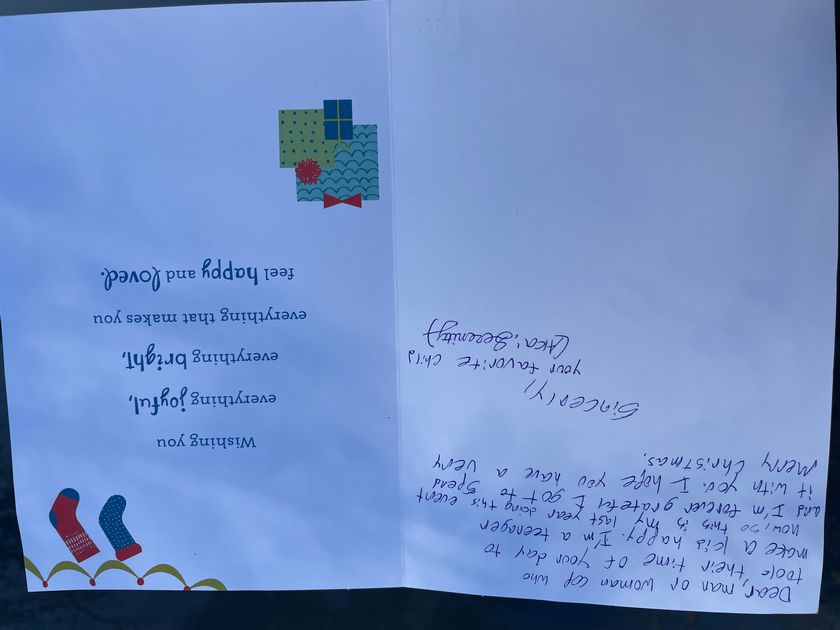 Dear, man or woman cop who
took their time of your day to
make a kid happy. I'm a teenager
now, so this is my last year doing this event
and I'm forever grateful I got to spend
it with you. I hope you have a very
merry Christmas.
Sincerly,
your favorite child
(Aka: Serenity)
Wishing you
everything joyful,
everything bright,
everything that makes you
feel happy and loved.